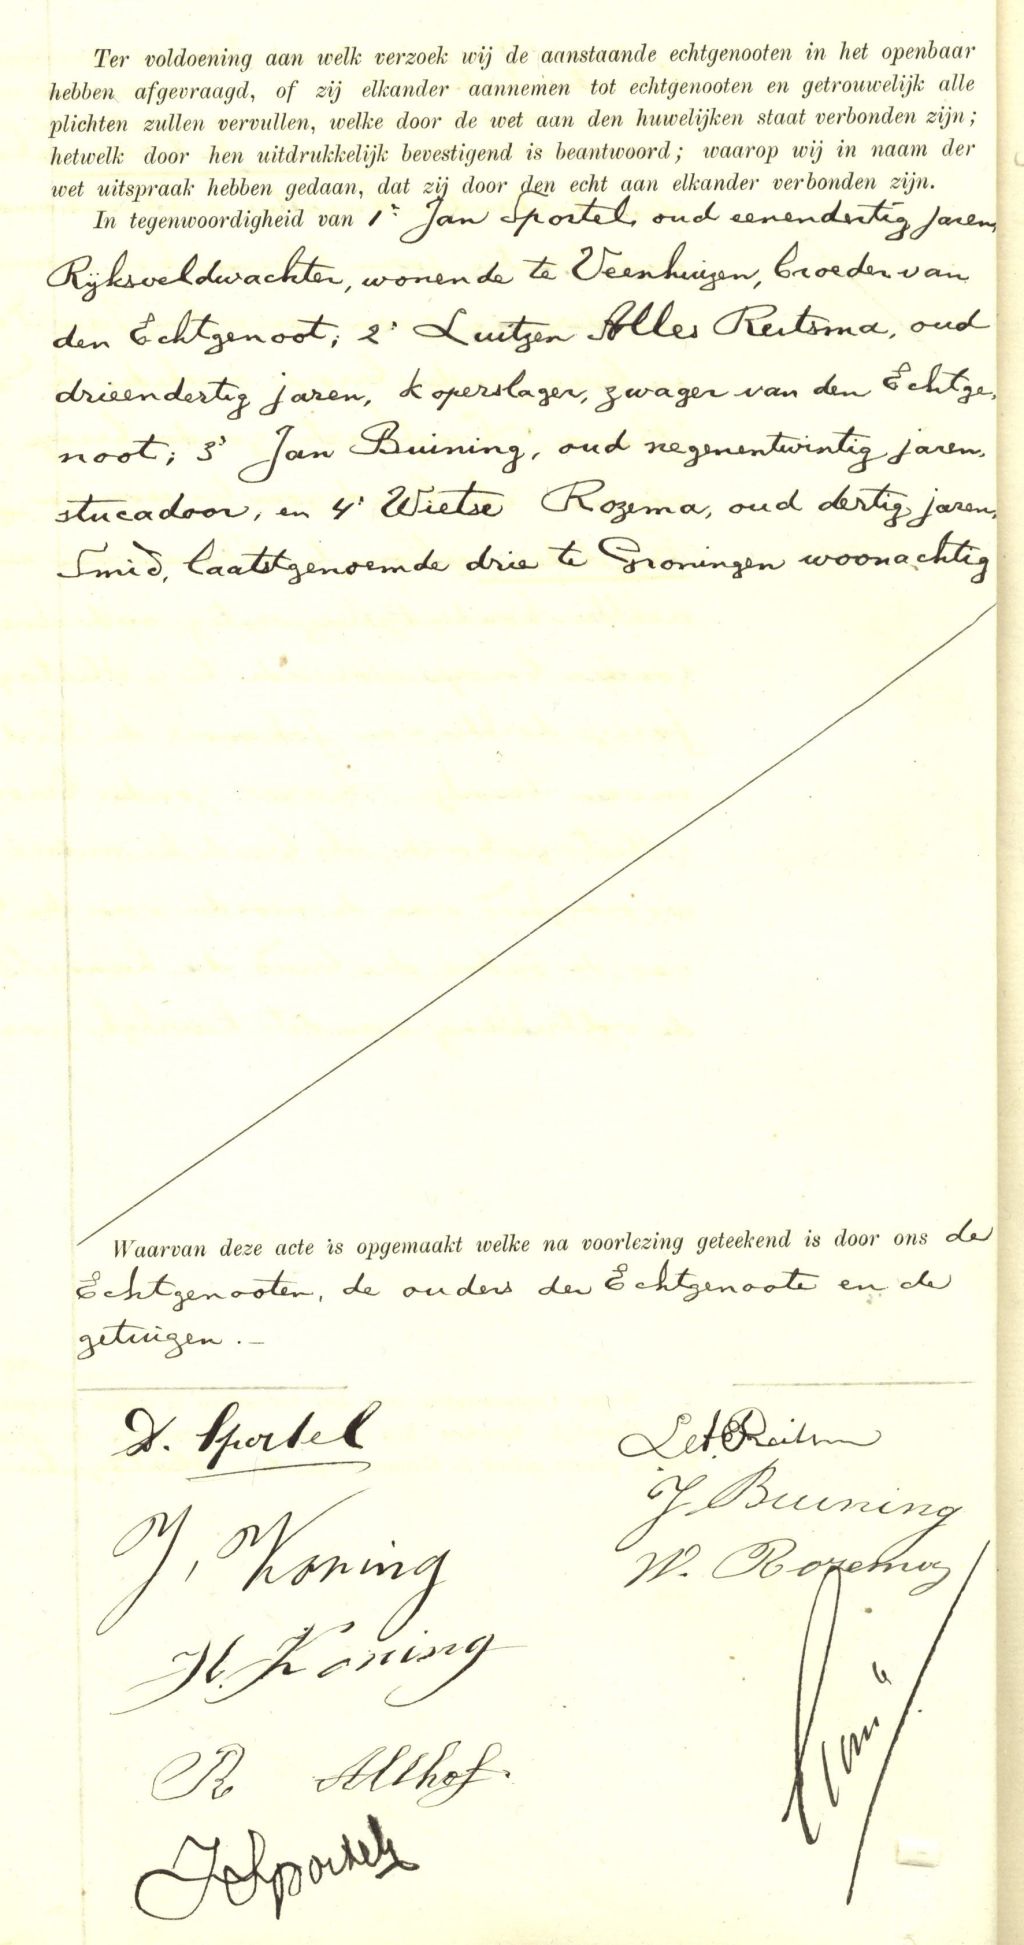 Ter voldoening aan welk verzoek wij de aanstaande echtgenooten in het openbaar
hebben afgevraagd, of zij elkander aannemen tot echtgenooten en getrouwelijk alle
plichten zullen vervullen, welke door de wet aan den huwelijken staat verbonden zijn;
hetwelk door hen uitdrukkelijk bevestigend is beantwoord; waarop wij in naam der
wet uitspraak hebben gedaan, dat zij door den echt aan elkander verbonden zijn.
In tegenwoordigheid van 1° Jan Sportel, oud eenendertig jaren,
Rijksveldwachter, wonende te Veenhuizen, broeder van
den Echtgenoot; 2° Luitzen Alles Reitsma, oud
drieendertig jaren, koperslager, zwager van den Echtge-
noot; 3° Jan Buining, oud negenentwintig jaren,
stucadoor, en 4° Wietse Rozema, oud dertig jaren,
Smid, laatstgenoemde drie te Groningen woonachtig
Waarvan deze acte is opgemaakt welke na voorlezing geteekend is door ons de
Echtgenooten, de ouders der Echtgenoote en de
getuigen.—
D. Sportel
J. Koning
H. Koning
R Althof.
J Sportel
L A Reitsma
J Buining
W. Rozema